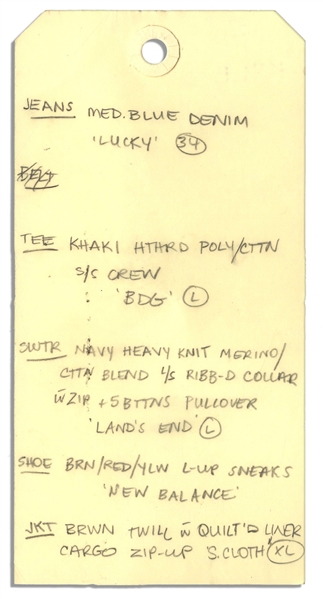 JEANS MED. BLUE DENIM
'LUCKY' 34
BELT
TEE KHAKI HTHRD POLY/CTTN
S/S CREW
'BDG' L
SWTR NAVY HEAVY KNIT MERINO/
CTTN BLEND L/S RIBB-D COLLAR
W ZIP + 5 BTTNS PULLOVER
'LAND'S END' L
SHOE BRN/RED/YLW L-UP SNEAKS
'NEW BALANCE'
JKT BRWN TWILL W QUILT'D LINER
CARGO ZIP-UP 'S.CLOTH' XL